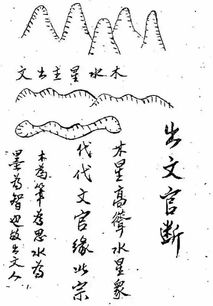 木水星主出文
出文官断
木星高聳水星象
代代文官緣此宗
木為筆為思水為
墨為智也故出文人